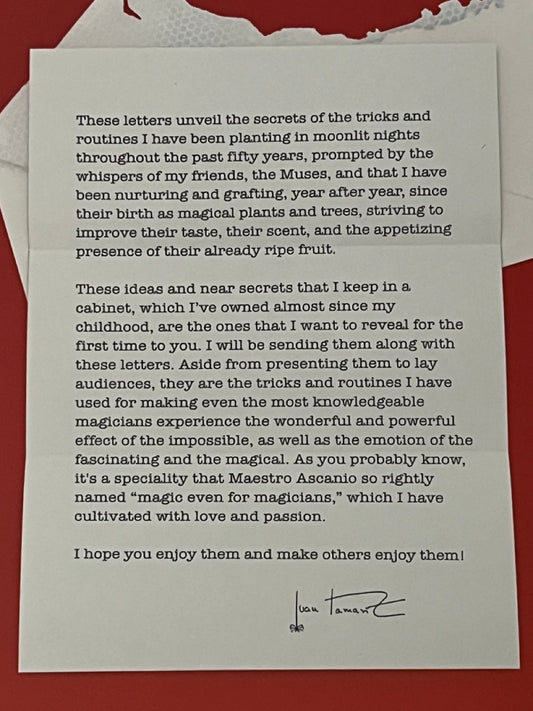 These letters unveil the secrets of the tricks and
routines I have been planting in moonlit nights
throughout the past fifty years, prompted by the
whispers of my friends, the Muses, and that I have
been nurturing and grafting, year after year, since
their birth as magical plants and trees, striving to
improve their taste, their scent, and the appetizing
presence of their already ripe fruit.
These ideas and near secrets that I keep in a
cabinet, which I've owned almost since my
childhood, are the ones that I want to reveal for the
first time to you. I will be sending them along with
these letters. Aside from presenting them to lay
audiences, they are the tricks and routines I have
used for making even the most knowledgeable
magicians experience the wonderful and powerful
effect of the impossible, as well as the emotion of the
fascinating and the magical. As you probably know,
it's a speciality that Maestro Ascanio so rightly
named “magic even for magicians,” which I have
cultivated with love and passion.
I hope you enjoy them and make others enjoy them!
Juan Tamariz